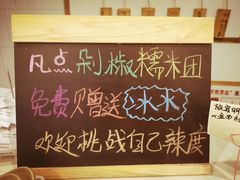 凡点剁椒糯米团
免费赠送冰水
欢迎挑战自己辣度